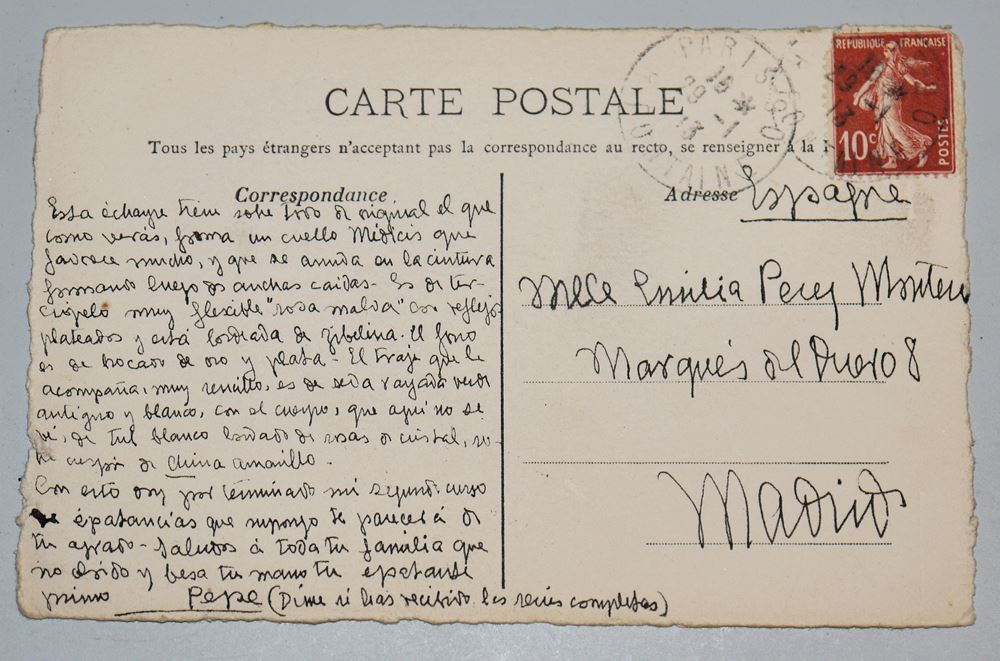 CARTE POSTALE
Tous les pays étrangers n'acceptant pas la correspondance au recto, se renseigner à la
REPUBLIQUE FRANÇAISE
10c
POSTES
PARIS
18 *
29 -1
13
Correspondance
Esta échappe tiene sobre todo de original el que
como verás, forma un cuello Médicis que
favorece mucho, y que se anuda en la cintura
formando luego dos anchas caidas - Es de ter-
ciopelo muy flexible "rosa malva" con reflejos
plateados y está bordeada de zibelina. El forro
es de brocado de oro y plata - El traje que le
acompaña, muy sencillo, es de seda rayada verde
antiguo y blanco, con el cuerpo, que aquí no se
vé, de tul blanco bordado de rosas de cristal, so-
bre crespón de China amarillo.
Con esto doy por terminado mi segundo curso
de épatancias que supongo te parecerá de
tu agrado - Saludos á toda tu familia que
no olvido y besa tu mano tu epatante
primo Pepe (Dime si has recibido las series completas)
Adresse
Espagne
Mlle Emilia Perez Montero
Marqués del Duero 8
Madrid